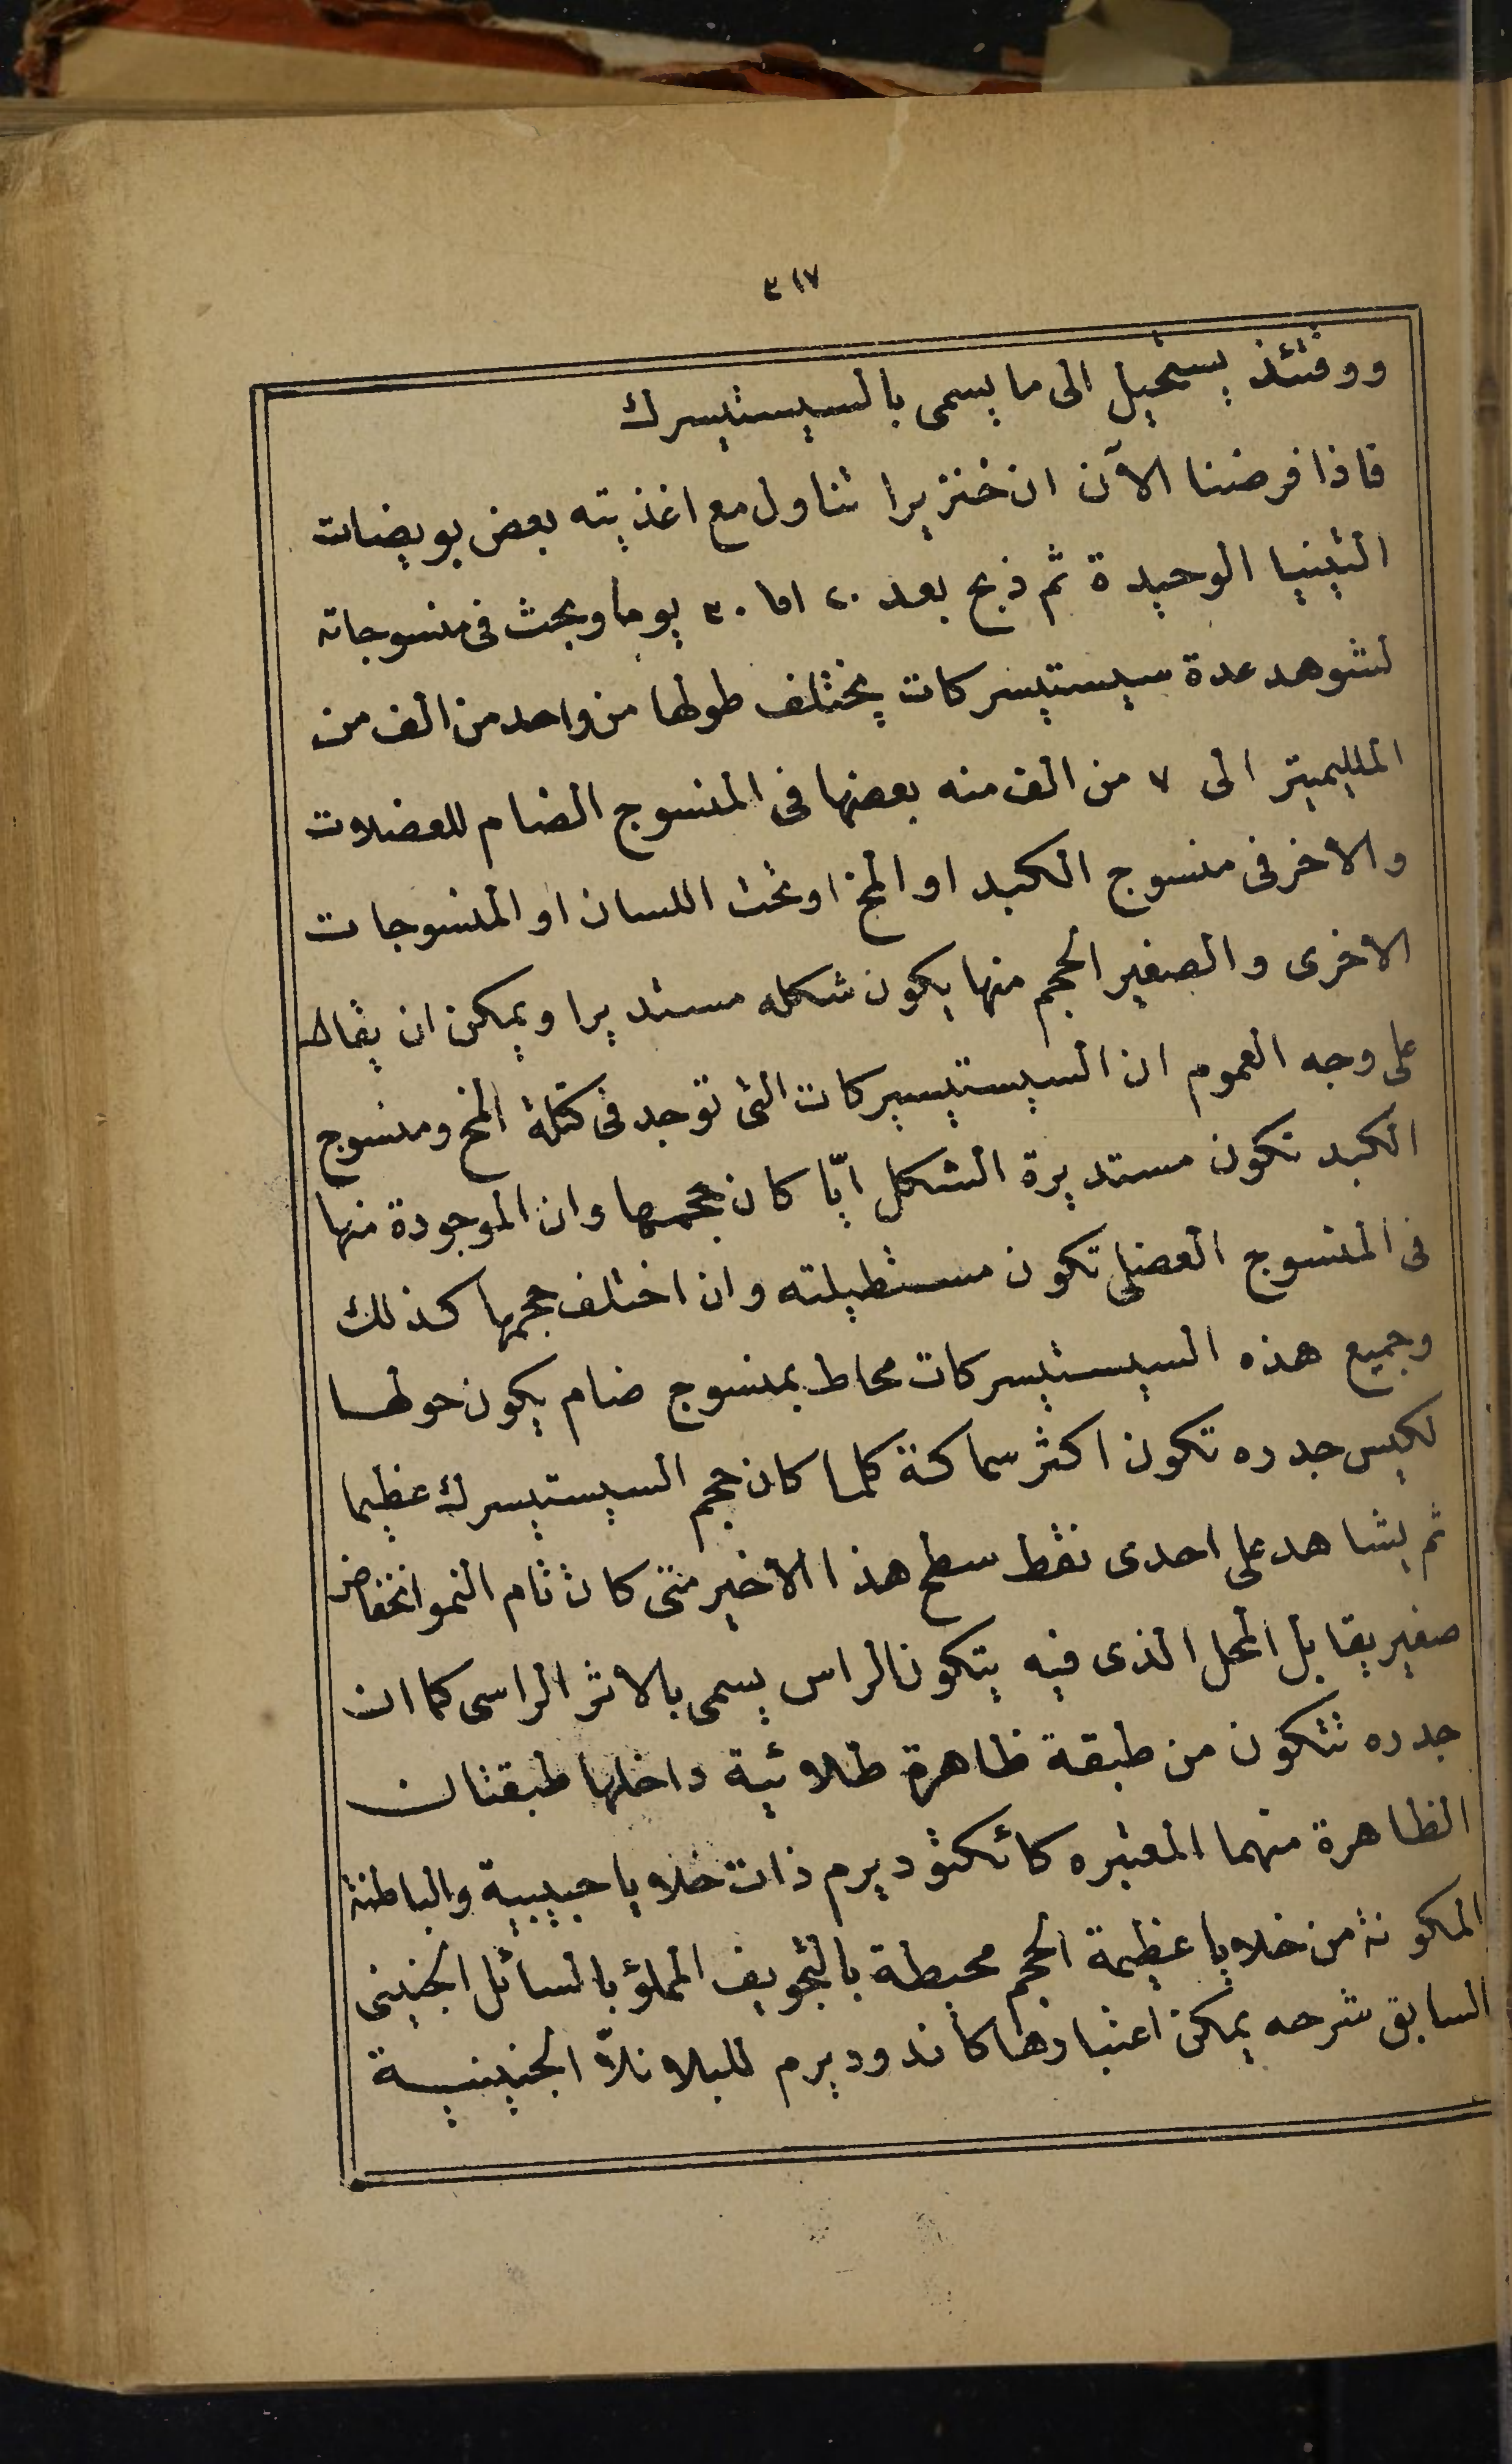 ٣١٧
ووقتئذ يستحيل الى ما يسمى بالسيستيسرك
فاذا فرضنا الآن ان خنزيرا تناول مع اغذيته بعض بويضات
التينيا الوحيدة ثم ذبح بعد ٢٠ او ٣٠ يوما وبحث فى منسوجاته
لشوهد عدة سيستيسركات يختلف طولها من واحد من الف من
المليميتر الى ٧ من الف منه بعضها فى المنسوج الضام للعضلات
والاخر فى منسوج الكبد او المخ او تحت اللسان او المنسوجات
الاخرى والصغير الحجم منها يكون شكله مستديرا ويمكن ان يقال
على وجه العموم ان السيستيسيركات التى توجد فى كتلة المخ ومنسوج
الكبد تكون مستديرة الشكل ايّا كان حجمها وان الموجودة منها
فى المنسوج العضلى تكون مستطيلته وان اختلف حجمها كذلك
وجميع هذه السيستيسركات محاط بمنسوج ضام يكون حولها
لكيس جدره تكون اكثر سماكة كلما كان حجم السيستيسرك عظيما
ثم يشاهد على احدى نقط سطح هذا الاخير متى كان تام النمو انخفاض
صغير يقابل المحل الذى فيه يتكون الراس يسمى بالاثر الراسى كما ان
جدره تتكون من طبقة ظاهرة طلائية داخلها طبقتان
الظاهرة منهما المعتبره كائكتوديرم ذات خلايا حبيبية والباطنة
المكونة من خلايا عظيمة الحجم محيطة بالتجويف المملؤ بالسائل الجنينى
السابق شرحه يمكن اعتبارها كاندوديرم للبلانلاّ الجنينية